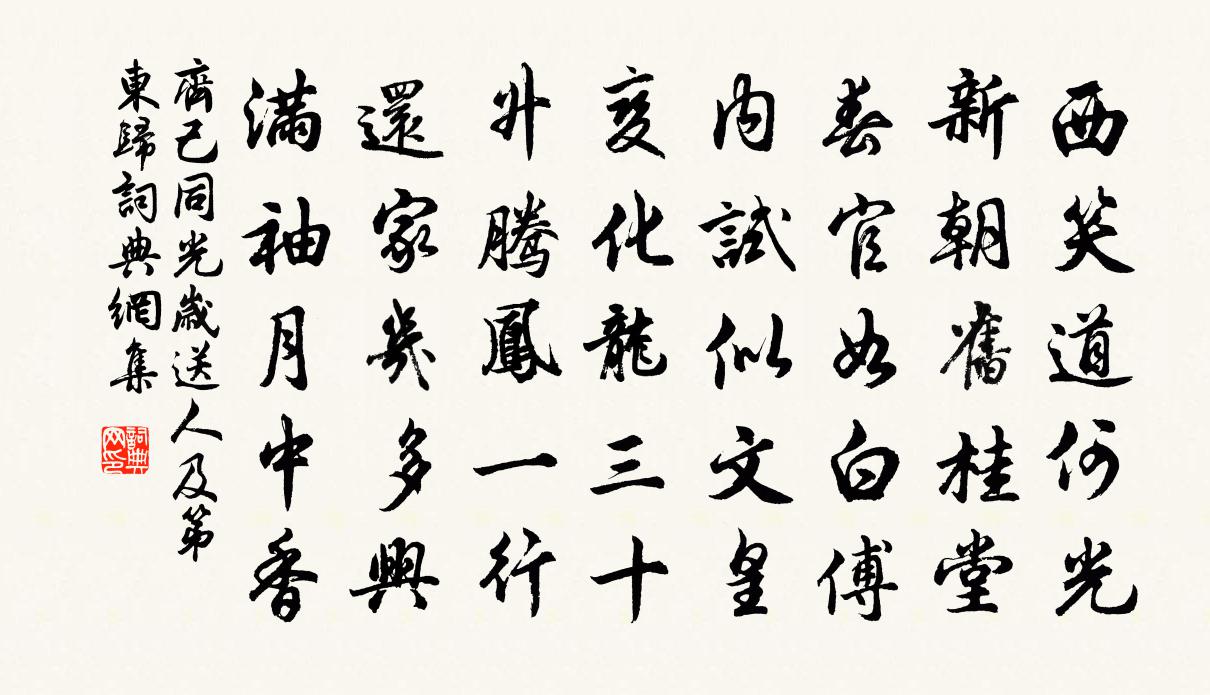 西笑道何光
新朝舊桂堂
春官如白傅
內試似文皇
變化龍三十
升騰鳳一行
還家幾多興
滿袖月中香
齊己同光歲送人及第
東歸詞典網集
詞典網印